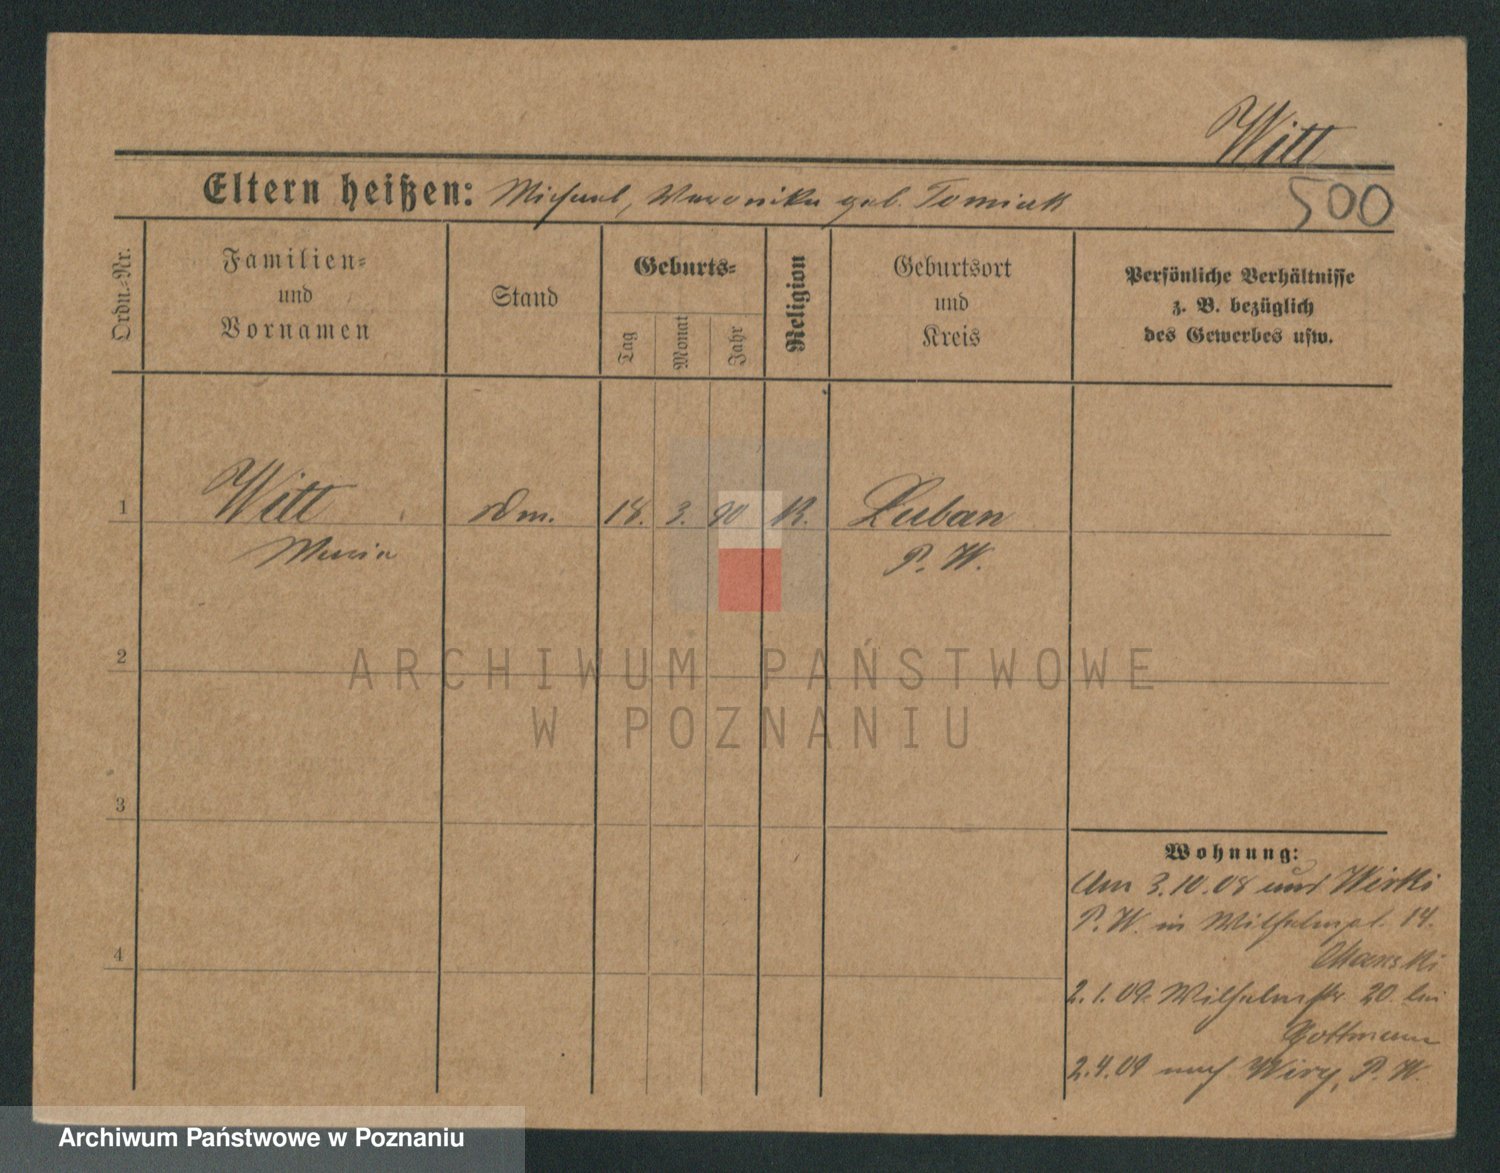 Witt
Eltern heißen: Michael, Veronika geb. Tomiak
500
Ordn.-Nr.
Familien- und Vornamen
Stand
Geburts-
Tag
Monat
Jahr
Religion
Geburtsort und Kreis
Persönliche Verhältnisse
z. B. bezüglich
des Gewerbes usw.
1 Witt 18. 3. 90 K. Luban
Maria P. W.
2
ARCHIWUM PAŃSTWOWE
W POZNANIU
3
4
Wohnung:
Am 3.10.08 Wirki
P. W. in Wilhelmpl. 14.
2.1.09. Wilhelmstr. 20. bei
2.4.09 nach Wiry, P. W.
Archiwum Państwowe w Poznaniu